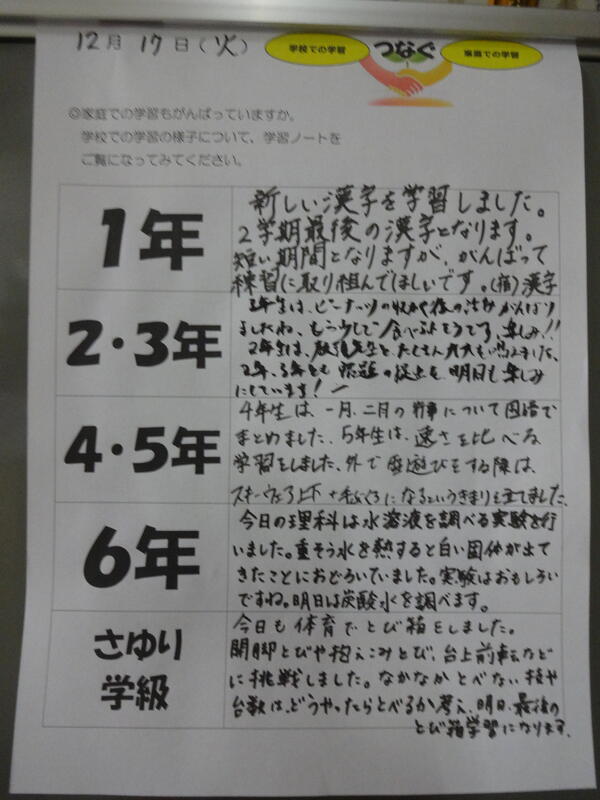 12月17日(火)
学校での学習
つなぐ
家庭での学習
◎家庭での学習もがんばっていますか。
学校での学習の様子について、学習ノートを
ご覧になってみてください。
1年
新しい漢字を学習しました。
2学期最後の漢字となります。
短い期間となりますが、がんばって
練習に取り組んでほしいです。(宿)漢字
2・3年
ピーナッツの
がんばり
ましたね。もう少しで食べられそうです。楽しみ!!
2年生は、
先生と、たくさん九九も唱えました。
2年、3年とも宿題の提出も明日も楽しみ
にしています!
4・5年
4年生は、一月、二月の行事について国語で
まとめました。5年生は、速さを比べる
学習をしました。外で雪遊びをする際は、
スキーウェア上下+手ぶくろになるというきまりを立てました。
6年
今日の理科は水溶液を調べる実験を行
いました。重そう水を熱すると白い固体が出て
きたことにおどろいていました。実験はおもしろい
ですね。明日は炭酸水を調べます。
さゆり
学級
今日も体育でとび箱をしました。
開脚とびや抱えこみとび、台上前転など
に挑戦しました。なかなかとべない技や
台数は、どうやったらとべるか考え、明日、最後の
とび箱学習になります。